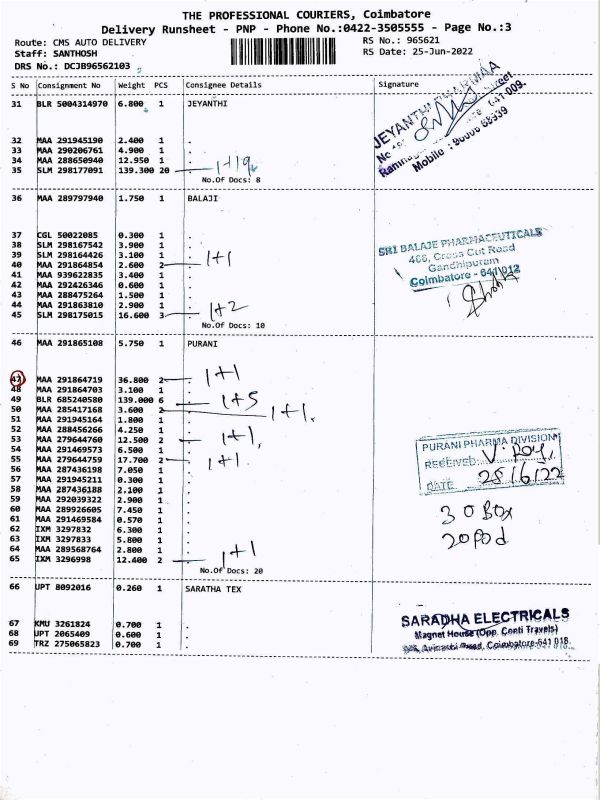 THE PROFESSIONAL COURIERS, Coimbatore
Delivery Runsheet - PNP - Phone No.:0422-3505555 - Page No.:3
Route: CMS AUTO DELIVERY
RS No.: 965621
Staff: SANTHOSH
RS Date: 25-Jun-2022
DRS No.: DCJB96562103
S No Consignment No Weight PCS Consignee Details Signature
31 BLR 5004314970 6.800 1 JEYANTHI
32 MAA 291945190 2.400 1 .
33 MAA 290206761 4.900 1 .
34 MAA 288650940 12.950 1 .
35 SLM 298177091 139.300 20 . 1+19
No.Of Docs: 8
JEYANTHI PHARMAA
Street
641 009.
Mobile : 90036 68939
36 MAA 289797940 1.750 1 BALAJI
37 CGL 50022085 0.300 1 .
38 SLM 298167542 3.900 1 .
39 SLM 298164426 3.100 1 .
40 MAA 291864854 2.600 2 . 1+1
41 MAA 939622835 3.400 1 .
42 MAA 292426346 0.600 1 .
43 MAA 288475264 1.500 1 .
44 MAA 291863810 2.900 1 .
45 SLM 298175015 16.600 3 . 1+2
No.Of Docs: 10
SRI BALAJE PHARMACEUTICALS
466, Cross Cut Road
Gandhipuram
Coimbatore - 641 012
46 MAA 291865108 5.750 1 PURANI
47 MAA 291864719 36.800 2 . 1+1
48 MAA 291864703 3.100 1 .
49 BLR 685240580 139.000 6 . 1+5
50 MAA 285417168 3.600 2 . 1+1.
51 MAA 291945164 1.800 1 .
52 MAA 288456266 4.250 1 .
53 MAA 279644760 12.500 2 . 1+1,
54 MAA 291469573 6.500 1 .
55 MAA 279644759 17.700 2 . 1+1
56 MAA 287436198 7.050 1 .
57 MAA 291945211 0.300 1 .
58 MAA 287436188 2.100 1 .
59 MAA 292039322 2.900 1 .
60 MAA 289926605 7.450 1 .
61 MAA 291469584 0.570 1 .
62 IXM 3297832 6.300 1 .
63 IXM 3297833 5.800 1 .
64 MAA 289568764 2.800 1 .
65 IXM 3296998 12.400 2 . 1+1
No.Of Docs: 20
PURANI PHARMA DIVISION
RECEIVED V. Roy,
DATE 25/6/22
30 Box
20 Pod
66 UPT 8092016 0.260 1 SARATHA TEX
67 KMU 3261824 0.700 1 .
68 UPT 2065409 0.600 1 .
69 TRZ 275065823 0.700 1 .
SARADHA ELECTRICALS
Magnet House (Opp. Conti Travels)
Coimbatore-641 018.